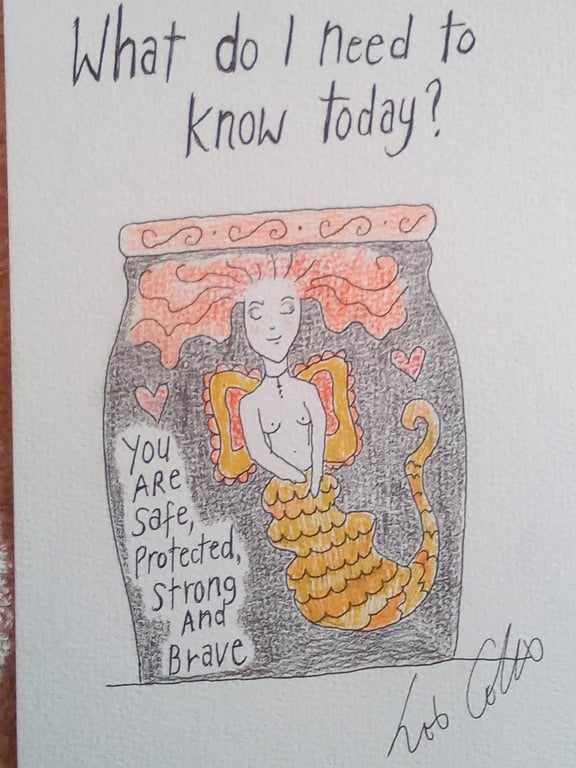 What do I need to
know today?
You
ARe
Safe,
Protected,
Strong
And
Brave